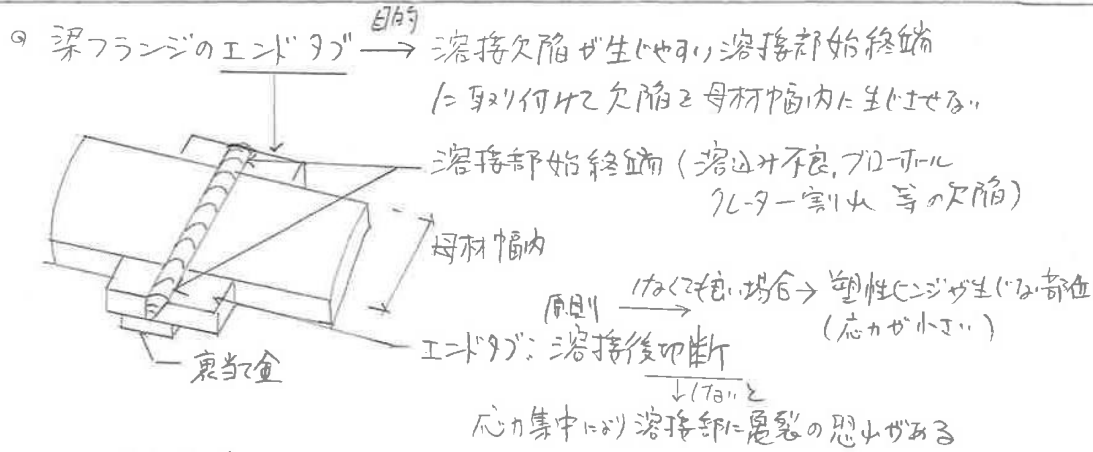 ◎ 梁フランジのエンドタブ 目的→ 溶接欠陥が生じやすい溶接部始終端
に取り付けて欠陥を母材幅内に生じさせない
溶接部始終端(溶込み不良,ブローホール
クレーター割れ 等の欠陥)
母材幅内
原則 しなくても良い場合→ 塑性ヒンジが生じない部位
(応力が小さい)
エンドタブ: 溶接後切断
裏当て金
↓しないと
応力集中により溶接部に亀裂の恐れがある